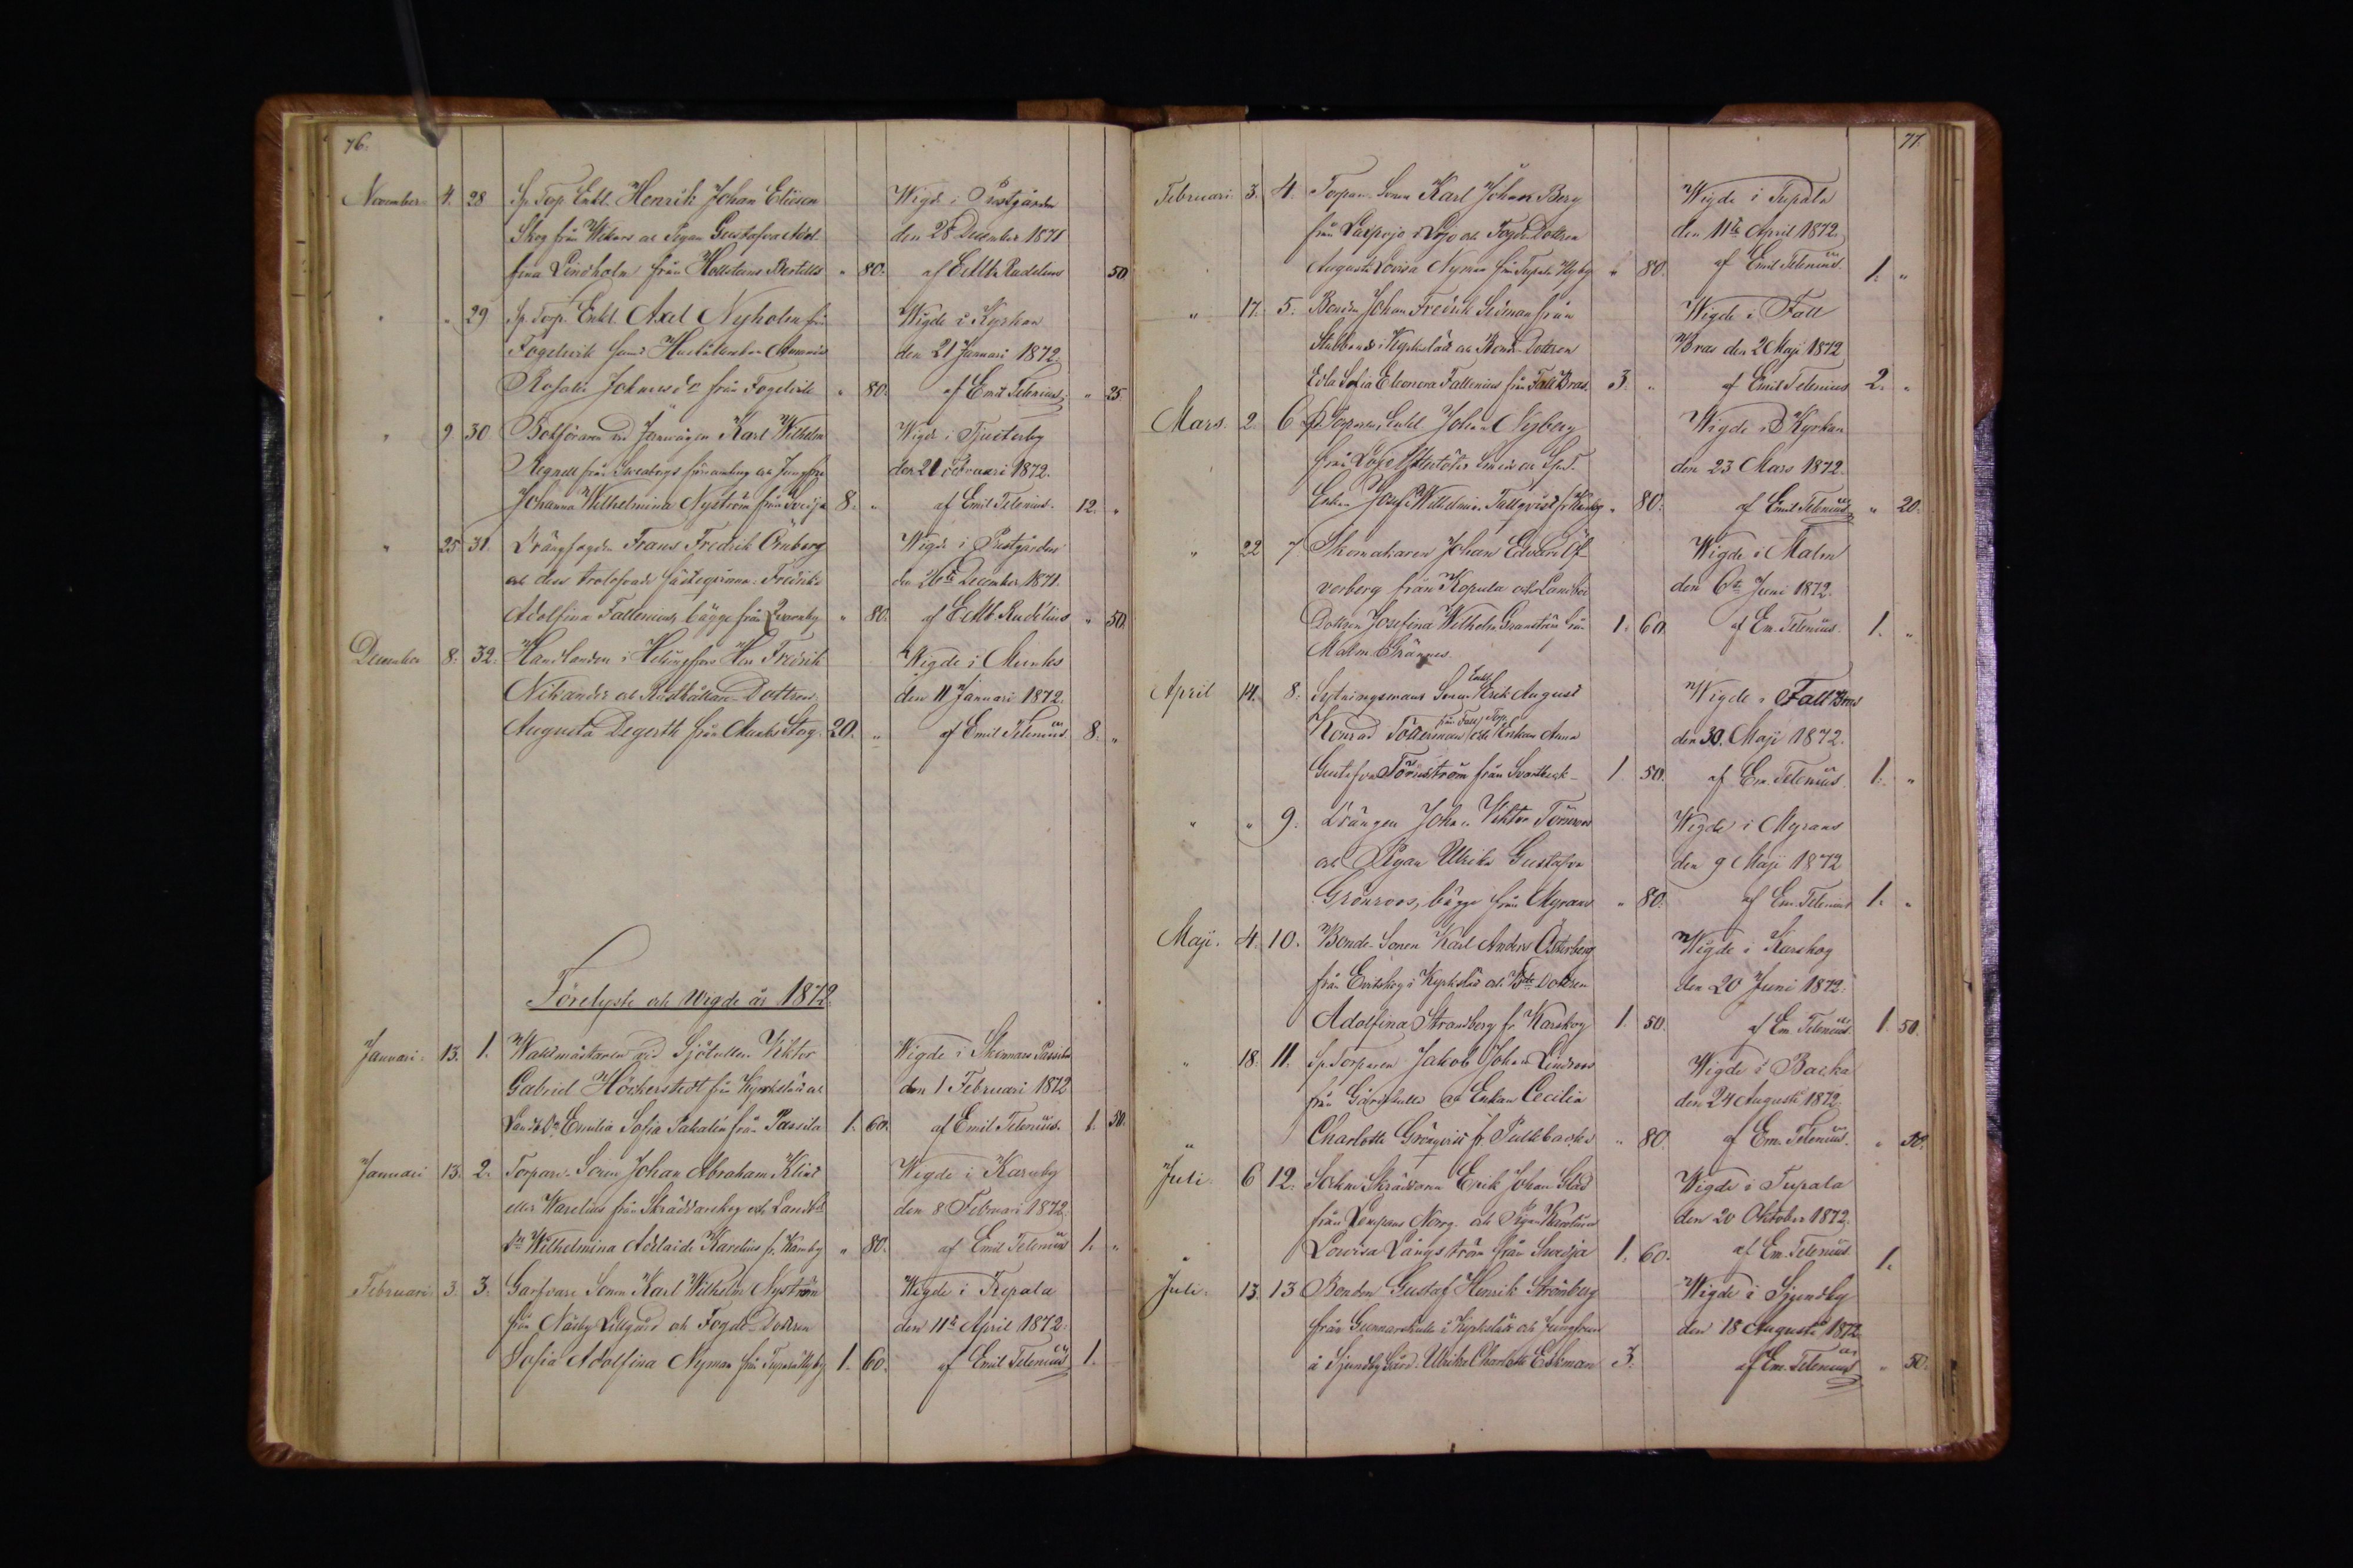 76.
November 4. 28 Sp. Torp. Enkl. Henrik Johan Eliesen Wigde i Prestgården
Skog från Wikars och Pigan Gustafva Adol- den 28 December 1871
fina Lindholm från Hollstens Bertills " 80. af Rudelius 50
" " 29 Sp. Torp. Enkl. Axel Nyholm från Wigde i Kyrkan
Fogelvik samt den 21 Januari 1872.
Rosalie Johansdr från Fogelvik " 80. af Emil Telenius " 25
" 9 30 Bokföraren vid Karl Wilhelm Wigde i Tjusterby
Regnell från Sveaborgs församling och Jungfru den 21 Februari 1872.
Johanna Wilhelmina Nyström från Svidja 8. " af Emil Telenius. 12. "
" 25 31. Drängfogden Frans Fredrik Örnberg Wigde i Prestgården
och dess trolofvade fästeqvinna Fredrika den 26te December 1871.
Adolfina Fallenius, bägge från Qvarnby " 80. af Rudelius " 50
December 8. 32. Handlanden i Helsingfors Herr Fredrik Wigde i Munks
Nikander och Rusthållare-Dottren den 11 Januari 1872.
Augusta Degerth från Munks Storg. 20. " af Emil Telenius 8. "
Förelyste och Wigde år 1872.
Januari. 13. 1. Waktmästaren vid Sjötullen Viktor Wigde i Skinnars Passila
Gabriel Höckerstedt från Kyrkslätt och den 1 Februari 1872
Emilia Sofia Pakalén från Passila 1. 60. af Emil Telenius. 1. 50.
Januari 13. 2. Torpare-Sonen Johan Abraham Klint Wigde i Karnby
eller Warelius från Skräddarskog och Landb. den 8 Februari 1872.
dr Wilhelmina Adelaide Karelius fr. Karnby " 80. af Emil Telenius 1. "
Februari 3. 3. Garfvare Sonen Karl Wilhelm Nyström Wigde i Tupala
från Näsby Lillgård och Fogde-Dottren den 11te April 1872.
Sofia Adolfina Nyman från Tupala Nyby 1. 60. af Emil Telenius 1.
77.
Februari 3. 4. Torpare-Sonen Karl Johan Berg Wigde i Tupala
från Laxpojo i Lojo och Fogde-Dottren den 11te April 1872
Augusta Lovisa Nyman från Tupala Nyby " 80. af Emil Telenius. 1. "
" 17. 5. Bonden Johan Fredrik Sidman från Wigde i Fall
i Kyrkslätt och Bonde-Dottren Bras den 2 Maji 1872
Edla Sofia Eleonora Fallenius från Fall Bras. 3. " af Emil Telenius 2. "
Mars. 2. 6 Sp. Torparen, Enkl. Johan Nyberg Wigde i Kyrkan
från Lojo och Sp.T. den 23 Mars 1872.
Enkan Josefa Wilhelmina Tallqvist fr. " 80. af Emil Telenius " 20.
" 22 7 Skomakaren Johan Edvard Öf- Wigde i Malm
verberg från Kopula och Landbo den 6te Juni 1872.
Dottren Josefina Wilhelm. Granström från 1. 60 af Em. Telenius. 1. "
Malm Grännas.
April 14. 8. Sytningsmans Sonen Enkl. Erik August Wigde i Fall Bras
Konrad Söderman från Fall, och Torp. Enkan Anna den 30. Maji 1872.
Gustafva Törnström från Svartbäck 1 50. af Em. Telenius 1. "
" " 9. Drängen Johan Viktor Törnroos Wigde i Myrans
och Pigan Ulrika Gustafva den 9 Maji 1872
Grönroos, bägge från Myrans " 80. af Em. Telenius 1. "
Maji. 4. 10. Bonde-Sonen Karl Anders Österberg Wigde i Karskog
från Evitskog i Kyrkslätt och Bde Dottren den 20 Juni 1872.
Adolfina Strandberg fr. Karskog 1. 50. af Em. Telenius 1. 50
" 18. 11. Sp. Torparen Jakob Johan Lindroos Wigde i Backa
från Gårdskulla och Enkan Cecilia den 24 Augusti 1872.
Charlotta Grönqvist fr. Pulkbacka " 80. af Em. Telenius. " 50.
Juli. 6 12. Socknen Skräddaren Erik Johan Glad Wigde i Tupala
från Lempans Norrg. och Pigan Karolina den 20 Oktober 1872.
Lowisa Långström från Swidja 1. 60. af Em. Telenius 1.
Juli. 13. 13 Bonden Gustaf Henrik Strömberg Wigde i Sjundby
från Gunnarskulla i Kyrkslätt och Jungfrun den 18 Augusti 1872
å Sjundby Gård. Ulrika Charlotta Eckman 3. af Em. Telenius " 50.